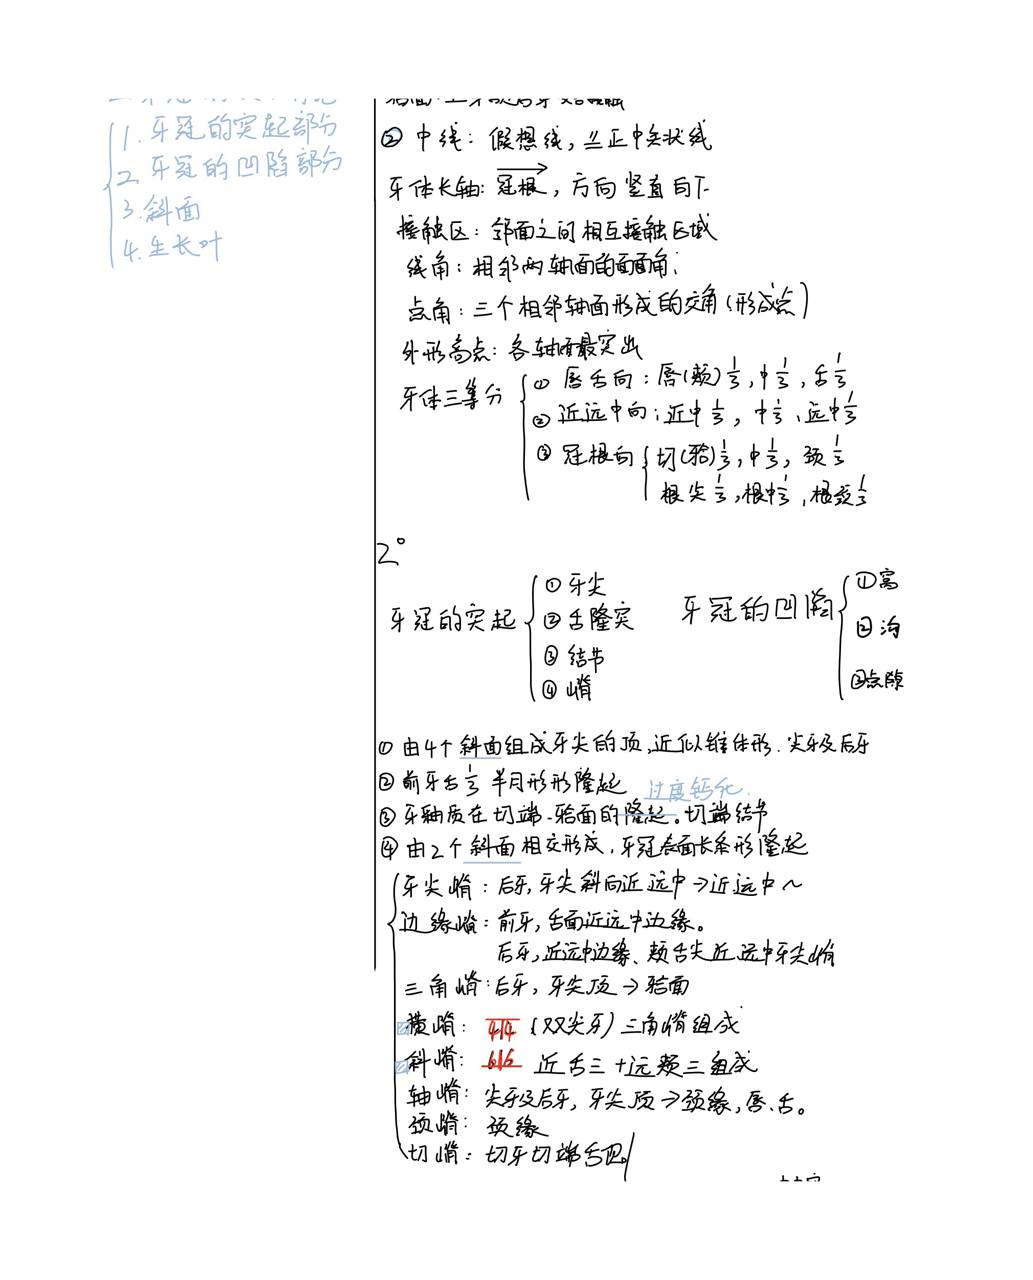 1. 牙冠的突起部分
2. 牙冠的凹陷部分
3. 斜面
4. 生长叶
② 中线：假想线，正中矢状线
牙体长轴：冠根，方向竖直向下
接触区：邻面之间相互接触区域
线角：相邻两轴面的面面角；
点角：三个相邻轴面形成的交角(形成点)
外形高点：各轴面最突出
牙体三等分
① 唇舌向：唇(颊)1/3，中1/3，舌1/3
② 近远中向：近中1/3，中1/3、远中1/3
③ 冠根向
切(𬌗)1/3，中1/3，颈1/3
根尖1/3，根中1/3，根颈1/3
2°
牙冠的突起
① 牙尖
② 舌隆突
③ 结节
④ 嵴
牙冠的凹陷
①窝
②沟
③点隙
① 由4个斜面组成牙尖的顶，近似锥体形．尖牙及后牙
② 前牙舌1/3 半月形形隆起
过度钙化．
③ 牙釉质在切端-𬌗面的隆起。切端结节
④ 由2个斜面相交形成，牙冠面长条形隆起
牙尖嵴：后牙，牙尖斜向近远中→近远中～
边缘嵴：前牙，舌面近远中边缘。
后牙，近远中边缘、颊舌尖近远中牙尖嵴
三角嵴：后牙，牙尖顶→𬌗面
横嵴：4|4 (双尖牙) 三角嵴组成
斜嵴：6|6 近舌三＋远颊三组成
轴嵴：尖牙及后牙，牙尖顶→颈缘，唇、舌。
颈嵴：颈缘
切嵴：切牙切端舌